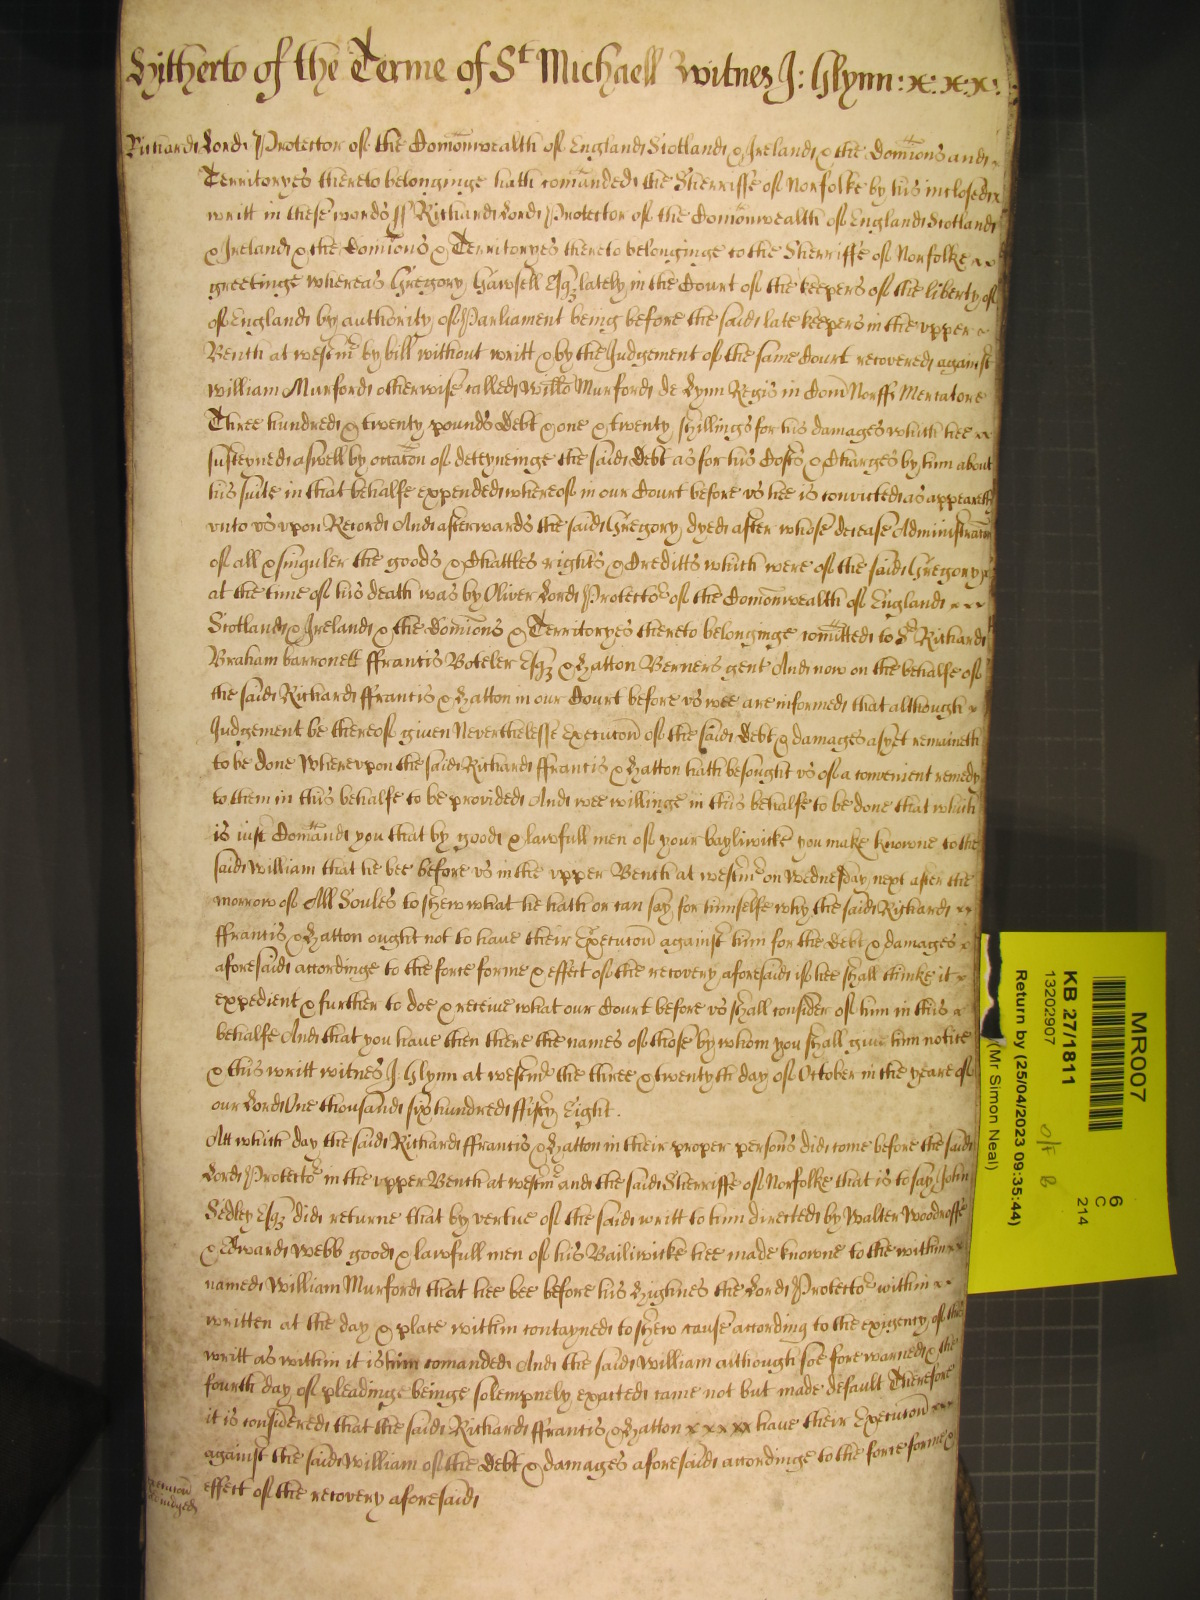 Hitherto of the Terme of St Michaell Witnes J: Glynn : x: x: x:
Richard Lord Protector of the Com̄onwealth of England Scotland & Ireland & the Domīons and
Territoryes thereto belonginge hath com̄anded the Sherriffe of Norfolke by his inclosed
writt in these words ss Richard Lord Protector of the Com̄onwealth of England Scotland
& Ireland & the Domīons & Territoryes thereto belonginge to the Sherriffe of Norfolke
greetinge whereas Gregory Gawsell Esqz lately in the Court of the keepers of the liberty of
of England by authority of Parliament being before the said late keepers in the vpper
Bench at westmr by bill without writt & by the Judgement of the same Court recovered against
William Murford otherwise called Willm̄ Murford de Lynn Regis in Com̄ Norff Mercatore
Three hundred & twenty pounds Debt & one & twenty shillings for his damages which hee
susteyned aswell by occac̄on of deteyneinge the said Debt as for his Costs & Charges by him about
his suite in that behalfe expended whereof in our Court before vs hee is convicted as appeareth
vnto vs vpon Record And afterwards the said Gregory dyed after whose decease Administrac̄on
of all & singuler the goods & Chattles rights & Creditts which were of the said Gregory
at the time of his death was by Oliver Lord Protector of the Com̄onwealth of England
Scotland & Ireland & the Domīons & Territoryes thereto belonginge com̄itted to Sr Richard
Braham barronett ffrancis Boteler Esqz & Hatton Berners gent And now on the behalfe of
the said Richard ffrancis & Hatton in our Court before vs wee are informed that although
Judgement be thereof given Neverthelesse Execuc̄on of the said Debt & damages as yet remaineth
to be done Wherevpon the said Richard ffrancis & Hatton hath besought vs of a convenient remedy
to them in this behalfe to be provided And wee willinge in this behalfe to be done that which
is iust Com̄and you that by good & lawfull men of your bayliwicke you make knowne to the
said William that he bee before vs in the vpper Bench at westmr on Wednesday next after the
morrow of All Soules to shew what he hath or can say for himselfe why the said Richard
ffrancis & Hatton ought not to have their Execuc̄on against him for the Debt & damages
aforesaid accordinge to the force forme & effect of the recovery aforesaid if hee shall thinke it
expedient & further to doe & receive what our Court before vs shall consider of him in this
behalfe And that you have then there the names of those by whom you shall give him notice
& this writt witnes J: Glynn at westmr the three & twentyth day of October in the yeare of
our Lord One thousand six hundred ffifty Eight.
Att which day the said Richard ffrancis & Hatton in their proper persons did come before the said
Lord Protector in the vpper Bench at westmr and the said Sherriffe of Norfolke that is to say John
Sedley Esqz did returne that by vertue of the said writt to him directed by Walter Woodroffe
& Edward Webb good & lawfull men of his Bailiwicke hee made knowne to the within
named William Murford that hee bee before his Highnes the Lord Protector within
written at the day & place within contayned to shew cause according to the exigency of this
writt as within it is him com̄anded And the said William although soe forewarned & the
fourth day of pleadinge beinge solempnely exacted came not but made default Therefore
it is considered that the said Richard ffrancis & Hatton x x x xx have their Execuc̄on
against the said William of the Debt & damages aforesaid accordinge to the force forme &
effect of the recovery aforesaid
MR007
KB 27/1811
13202907
Return by (25/04/2023 09:35:44)
(Mr Simon Neal)
6
C
214